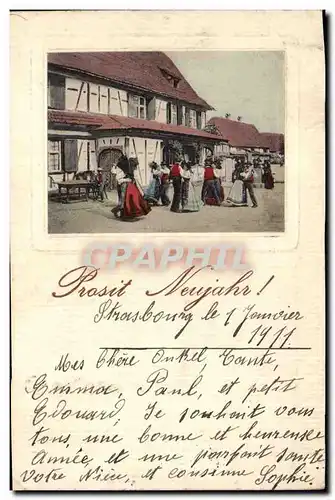 CPARAMA
Prosit Neujahr!
Strasbourg le 1 Janvier
1911
Mes Chère Onkel, Tante,
Emma, Paul, et petit
Edouard, Je souhait vous
tous, une bonne et heureuse
Année et une parfait sante
Votre Niéce, et cousinne Sophie,